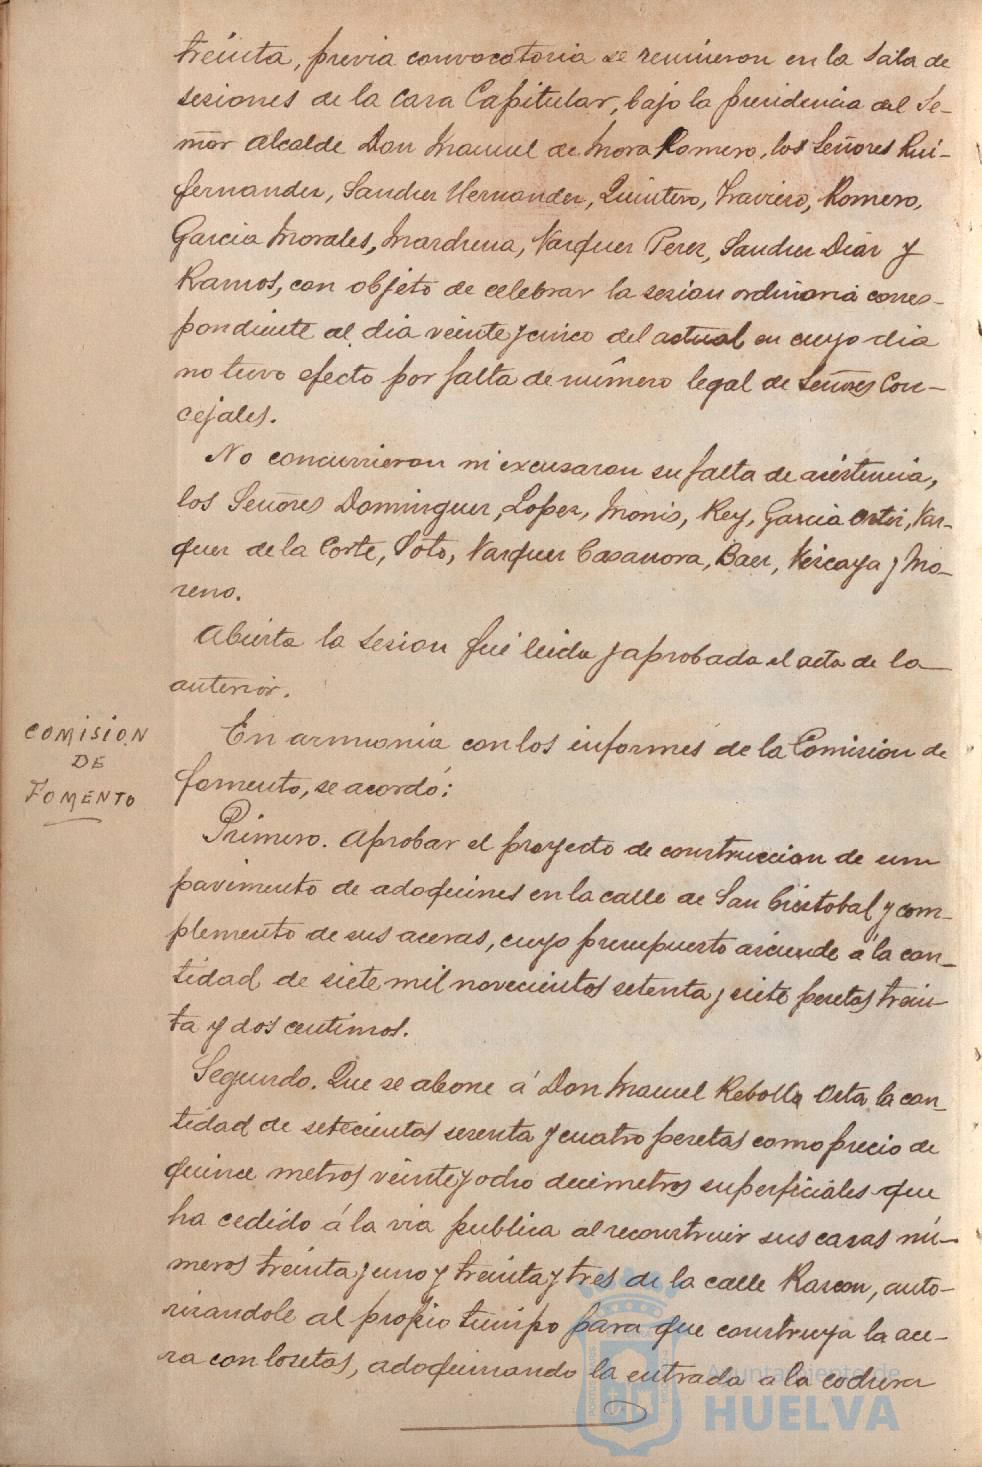 treinta, previa convocatoria se reunieron en la Sala de
sesiones de la Casa Capitular, bajo la presidencia del Se-
ñor Alcalde Don Manuel de Mora Romero, los Señores Rui-
fernandez, Sanchez Hernandez, Quintero, Traviezo, Romero,
Garcia Morales, Marchena, Vazquez Perez, Sanchez Diaz y
Ramos, con objeto de celebrar la sesion ordinaria corres-
pondiente al dia veinte y cinco del actual en cuyo dia
no tuvo efecto por falta de número legal de Señores Con-
cejales.
No concurrieron ni excusaron su falta de asistencia,
los Señores Dominguez, Lopez, Monis, Rey, Garcia Ortiz, Vaz-
quez de la Corte, Soto, Vazquez Casanova, Baez, Vizcaya y Mo-
reno.
Abierta la sesion fué leida y aprobada el acta de la
anterior.
COMISION
DE
FOMENTO
En armonia con los informes de la Comision de
fomento, se acordó:
Primero. Aprobar el proyecto de construccion de un
pavimento de adoquines en la calle de San Cristobal y com-
plemento de sus aceras, cuyo presupuesto asciende á la can-
tidad de siete mil novecientos setenta y siete pesetas trein-
ta y dos centimos.
Segundo. Que se abone á Don Manuel Rebollo Orta la can-
tidad de setecientas sesenta y cuatro pesetas como precio de
quince metros veinte y ocho decimetros superficiales que
ha cedido á la via publica al reconstruir sus casas nú-
meros treinta y uno y treinta y tres de la calle Rascon, auto-
rizandole al propio tiempo para que construya la ace-
ra con losetas, adoquinando la entrada a la cochera
Ayuntamiento de
HUELVA